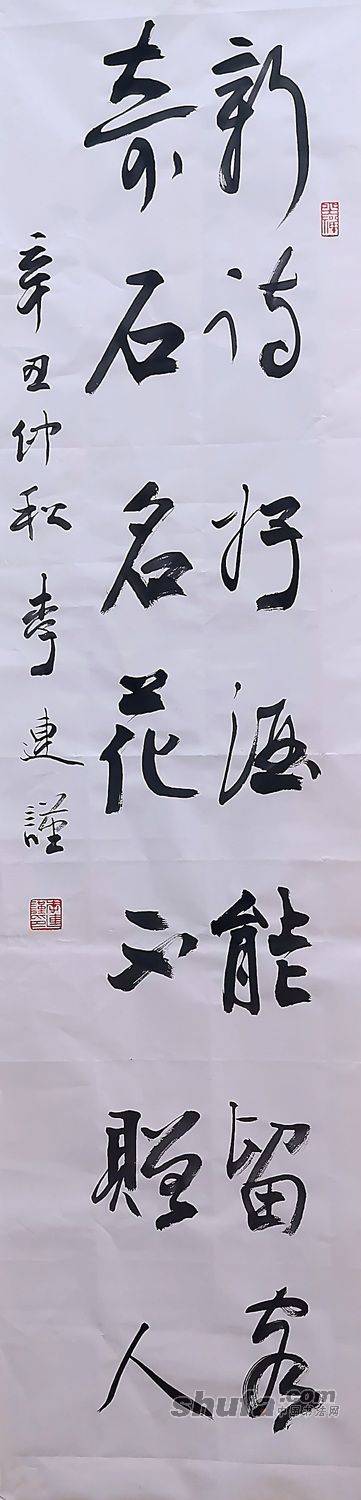 新诗好酒能留客
奇石名花不赠人
辛丑仲秋李連謹
shufa.com
中国书法网